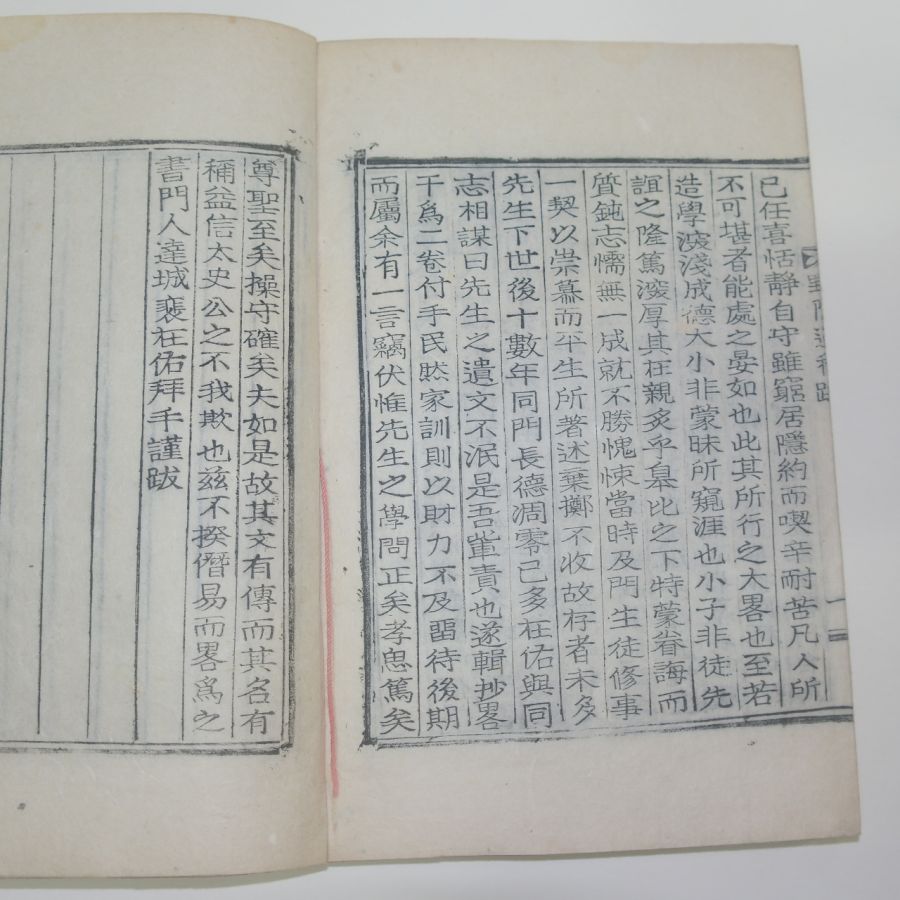 己任喜恬靜自守雖窮居隱約而喫辛耐苦凡人所
不可堪者能處之晏如也此其所行之大畧也至若
造學淺深成德大小非蒙昧所窺涯也小子非徒先
誼之隆篤深厚其在親炙乎皐比之下特蒙眷誨而
質鈍志懦無一成就不勝愧悚當時及門生徒修事
一契以崇慕而平生所著述棄擲不收故存者未多
先生下世後十數年同門長德凋零已多在佑與同
志相謀曰先生之遺文不泯是吾輩責也遂輯抄畧
干爲二卷付手民然家訓則以財力不及留待後期
而屬余有一言竊伏惟先生之學問正矣孝思篤矣
尊聖至矣操守確矣夫如是故其文有傳而其名有
稱益信太史公之不我欺也玆不揆僭易而畧爲之
書門人達城裵在佑拜手謹跋